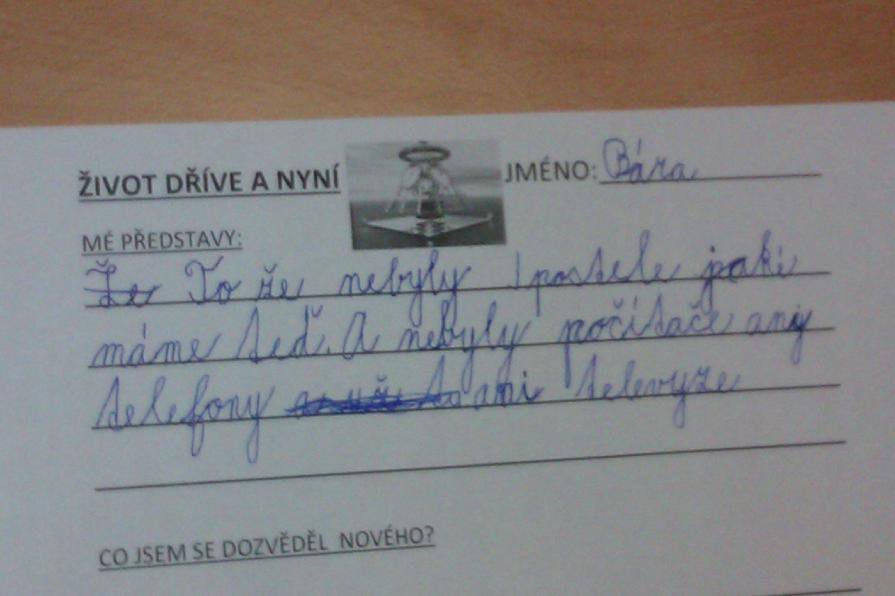 ŽIVOT DŘÍVE A NYNÍ JMÉNO: Bára
MÉ PŘEDSTAVY:
Že To že nebyly postele jaki
máme teď. A nebyly počítače any
telefony ani televyze
CO JSEM SE DOZVĚDĚL NOVÉHO?